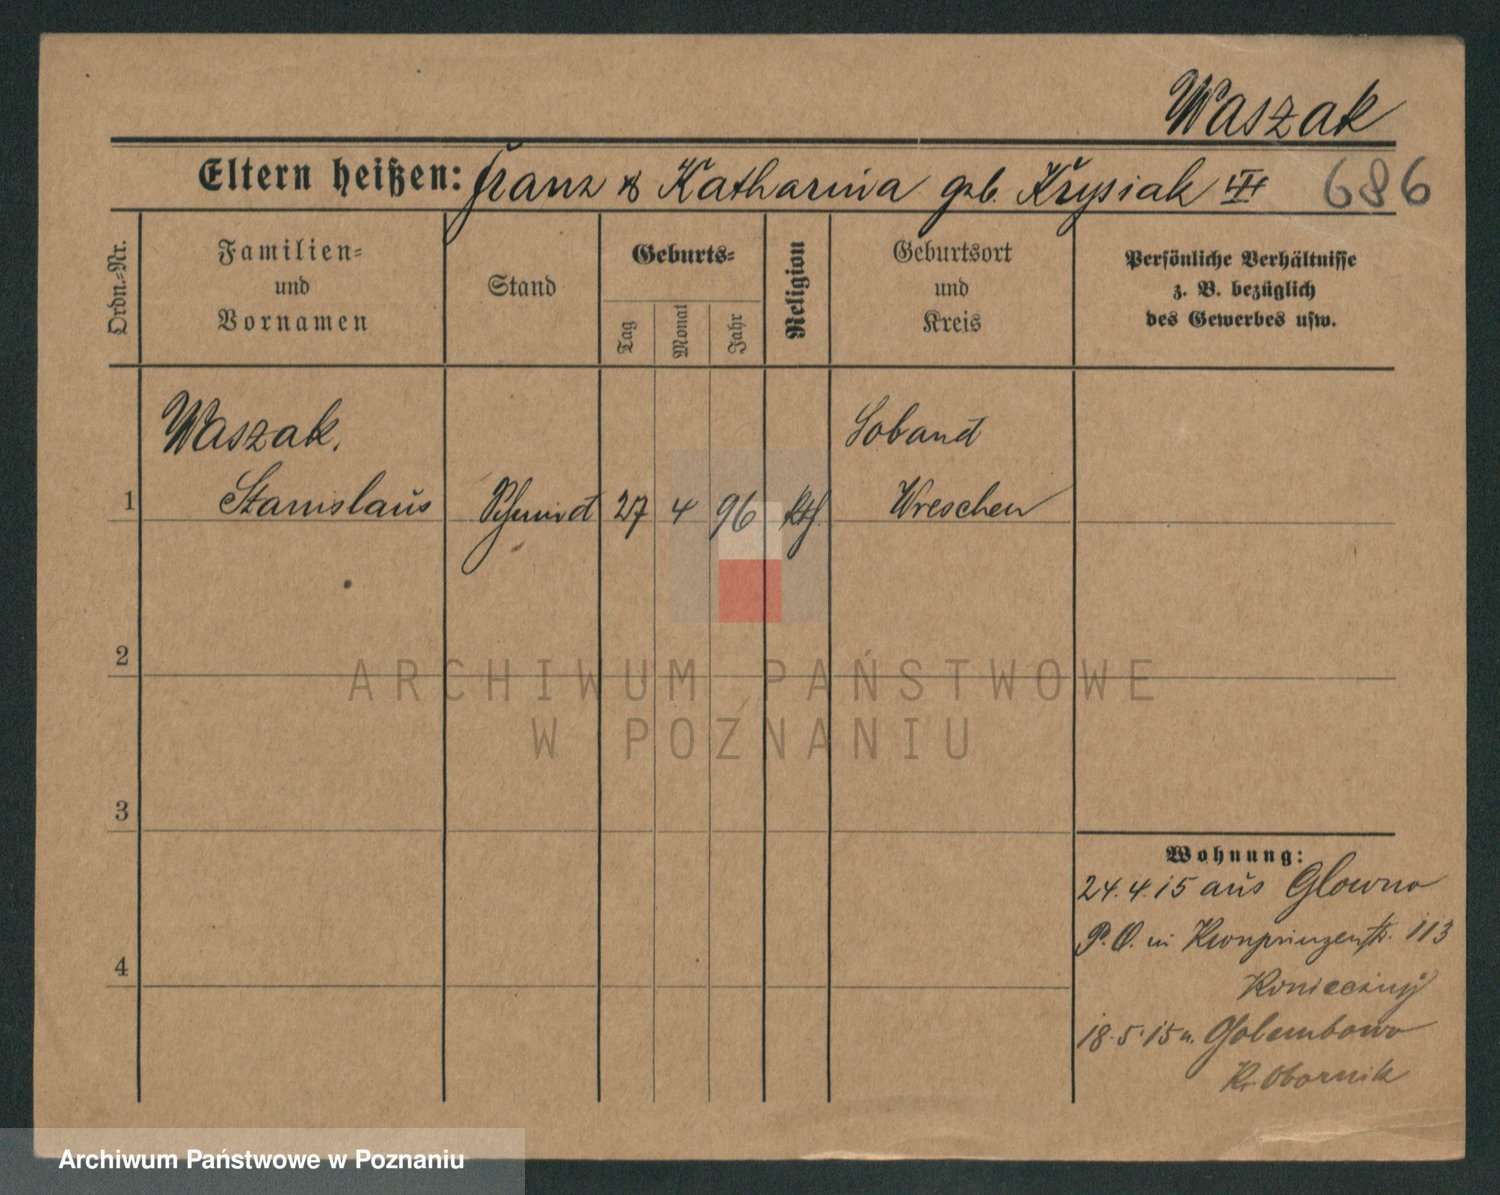 Waszak
Eltern heißen: Franz & Katharina geb. Krysiak
686
Ordn.-Nr.
Familien-
und
Vornamen
Stand
Geburts-
Tag
Monat
Jahr
Religion
Geburtsort
und
Kreis
Persönliche Verhältnisse
z. B. bezüglich
des Gewerbes usw.
1
Waszak,
Stanislaus
Schmidt
27
4
96
kth.
Wreschen
2
3
4
ARCHIWUM PAŃSTWOWE
W POZNANIU
Wohnung:
24.4.15 aus Glowno
P.O. in Kronprinzenstr. 113
Konieczny
18.5.15 n. Golembowo
Kr. Obornik
Archiwum Państwowe w Poznaniu